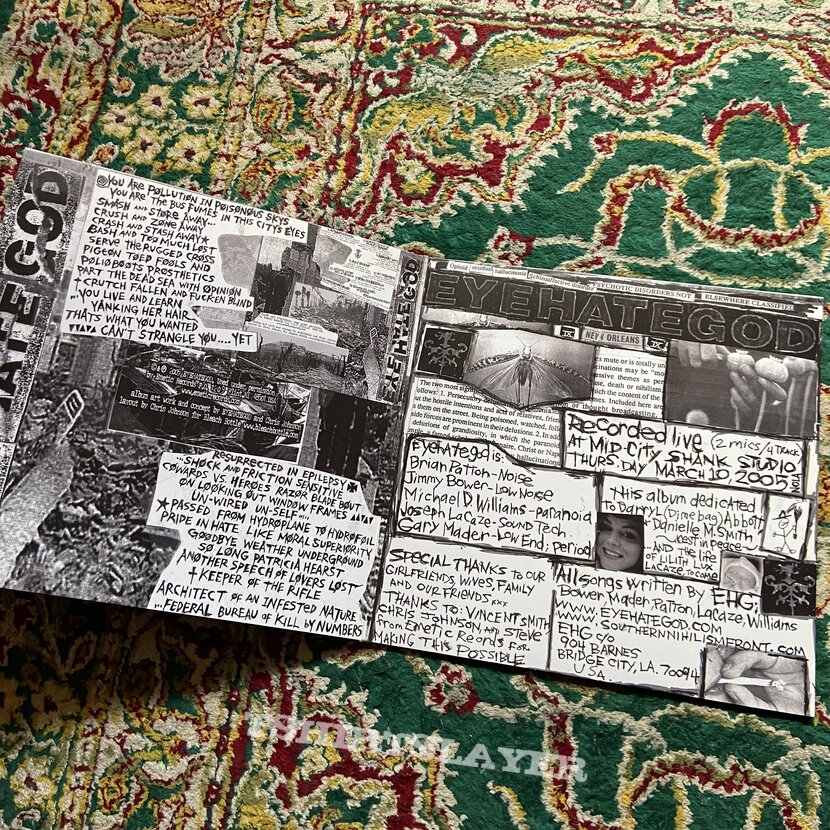 EYEHATEGOD
YOU ARE POLLUTION IN POISONOUS SKYS
YOU ARE THE BUS FUMES IN THIS CITYS EYES
SMASH AND STORE AWAY...
CRUSH AND ZONE AWAY
CRASH AND STASH AWAY
BASH AND TOO MUCH LOST
SERVE THE RUGGED CROSS
PIGEON TOED FOOLS AND
POLIO BOOTS PROSTHETIC
PART THE DEAD SEA WITH OPINION
CRUTCH FALLEN AND FUCKEN BLIND
...YOU LIVE AND LEARN
YANKING HER HAIR
THATS WHAT YOU WANTED
CAN'T STRANGLE YOU....YET
album art work and concept by EYEHATEGOD and Chris Johnson
layout by Chris Johnson for Bleach Bottle
...RESURRECTED IN EPILEPSY
SHOCK AND FRICTION SENSITIVE
COWARDS VS. HEROES RAZOR BLADE BOUT
ON LOOKING OUT WINDOW FRAMES
UN-WIRED UN-SELF...
PASSED FROM HYDROPLANE TO HYDROFOIL
PRIDE IN HATE LIKE MORAL SUPERIORITY
GOODBYE WEATHER UNDERGROUND
SO LONG PATRICIA HEARST
ANOTHER SPEECH OF LOVERS LOST
KEEPER OF THE RIFLE
ARCHITECT OF AN INFESTED NATURE
...FEDERAL BUREAU OF KILL BY NUMBERS
EYEHATEGOD
Opioid residual hallucinosis Schizoaffective disorder PSYCHOTIC DISORDERS NOT ELSEWHERE CLASSIFIED
EYEHATEGOD
NEW ORLEANS
Recorded live (2 mics/4 TRACK
AT MID-CITY SHANK STUDIO
THURS.DAY MARCH 10, 2005
eyehategod is:
Brian Patton-Noise
Jimmy Bower-Low Noise
Michael D. Williams-paranoia
Joseph LaCaze-Sound Tech.
Gary Mader-Low End; period
This album dedicated
to Darryl (Dimebag) Abbott
+ Danielle M. Smith
~rest in peace
AND the life
of LILITH LUX
LACAZE to come
SPECIAL THANKS to OUR
GIRLFRIENDS, WIVES, FAMILY
AND OUR FRIENDS.xxx
THANKS TO: VINCENT SMITH
CHRIS JOHNSON, AND STEVE
from Emetic Records FOR
MAKING THIS POSSIBLE
All songs written by EHG;
Bower, Mader, Patton, LaCaze, Williams
WWW. EYEHATEGOD.COM
WWW. SOUTHERNNIHILISMFRONT.COM
EHG c/o
904 BARNES
BRIDGE CITY, LA. 70094
U.S.A.
TSHIRTSLAYER